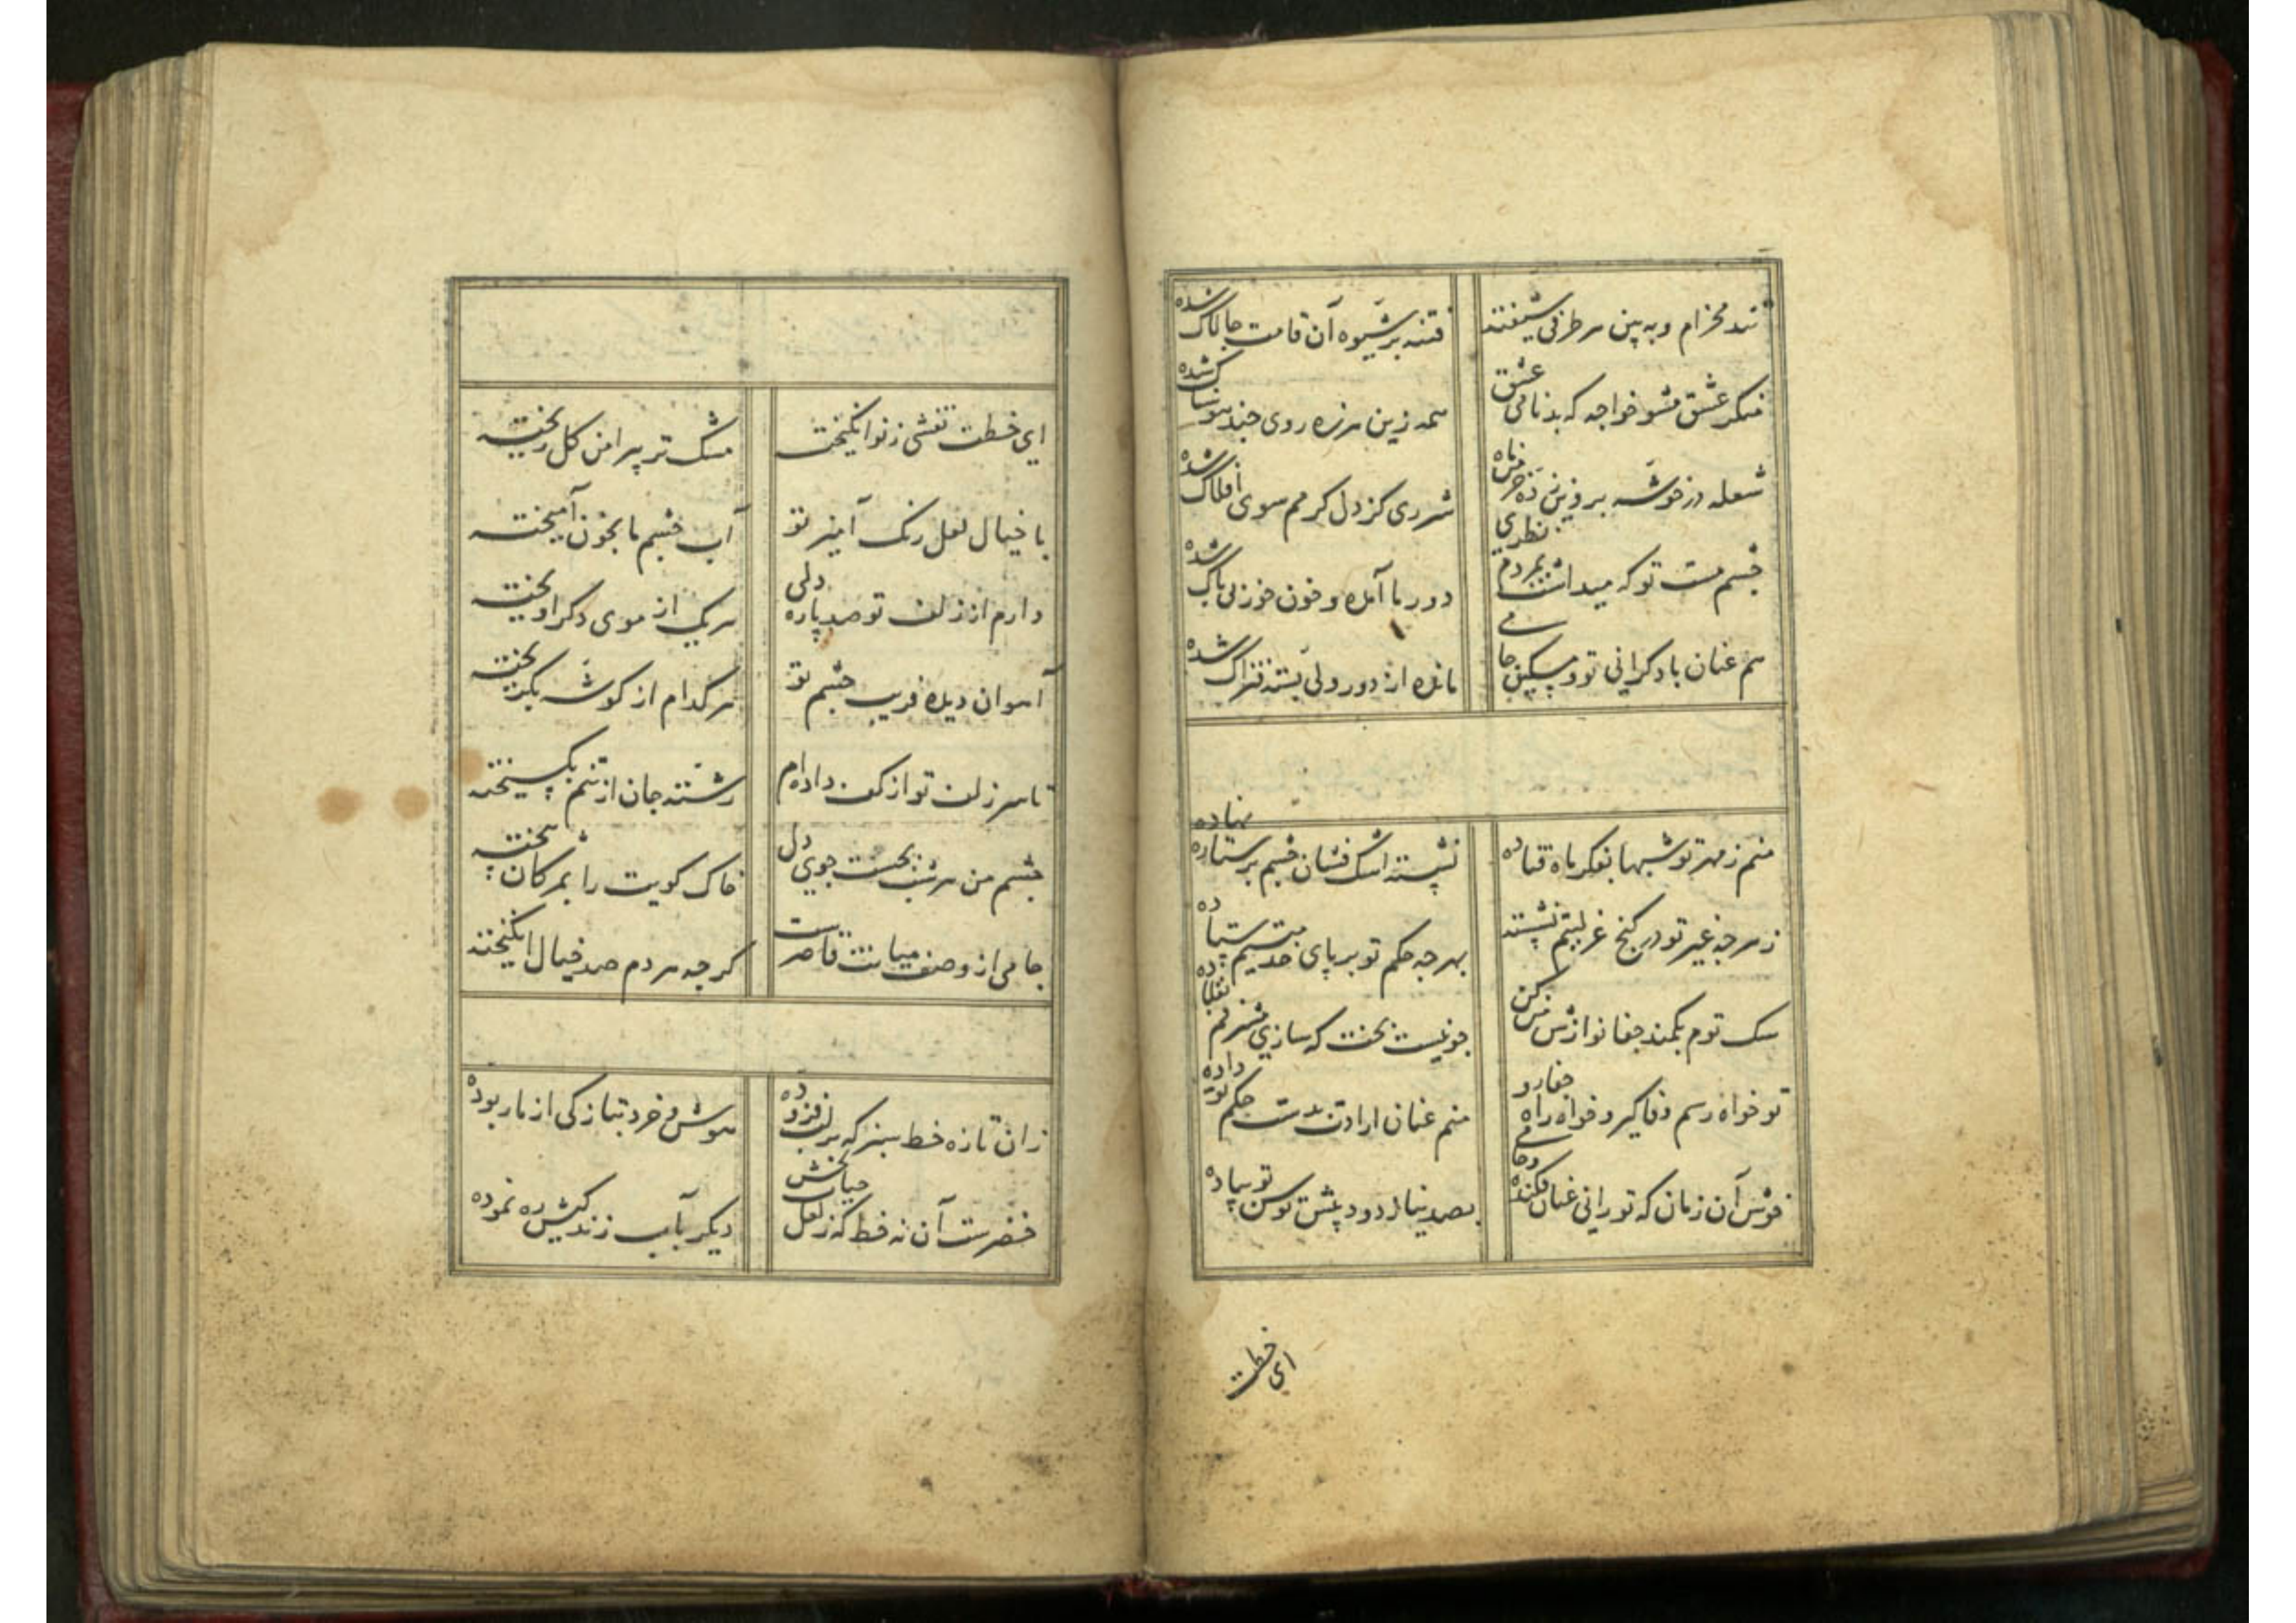 تند مخرام و به بین هر طرفی شیفتند فتنه بر شیوه آن قامت چالاک شده
منکر عشق مشو خواجه که بدنامی عشق همه زین هرزه روی چند هوسناک شده
شعله در خوشه پروین زده خرمن ماه شرری کز دل کرمم سوی افلاک شده
چشم مست تو که میداشت بمردم نظری دور ما آمده و خون خوری باک شده
هم عنان با دکرانی تو و مسکین جامی مانده از دور ولی بسته فتراک شده
منم ز مهر تو شبها بفکر ماه فتاده نشسته اشک فشان چشم بر ستاره نهاده
ز هر چه غیر تو در کنج غربتم نشسته بهر چه حکم تو بر پای خدمتیم ستاده
سک توم بکمند جفا نوازش من کن چو نیست بخت که سازی مشرفم بقلاده
تو خواه رسم وفا کیر و خواه راه جفا رو منم عنان ارادت بدست حکم تو داده
خوش آن زمان که تو رانی عنان فکنده و جامی بصد نیاز دود پیش توسن تو پیاده
ای خطت
ای خطت نقشی ز نو انکیخته مشک تر پیرامن کل ریخته
با خیال لعل رنک آمیز تو آب چشم ما بخون آمیخته
دارم از زلف تو صد پاره دلی هر یک از موی دکر آویخته
آهوان دیده فریب چشم تو هر کدام از کوشه بکریخته
تا سر زلف تو از کف داده ام رشته جان از تنم بکسیخته
چشم من هر شب بجست جوی دل خاک کویت را بمژکان بیخته
جامی از وصف میانت قاصرست کر چه هر دم صد خیال انکیخته
زان تازه خط سبز که بر لب فزوده هوش و خرد بتازکی از ما ربوده
خضرست آن نه خط که ز لعل حیات بخش دیکر بآب زندکیش ره نموده